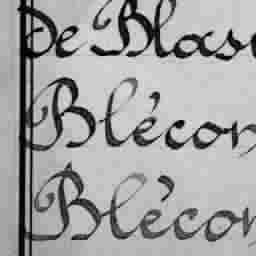 De Blas
Blécon
Blécon